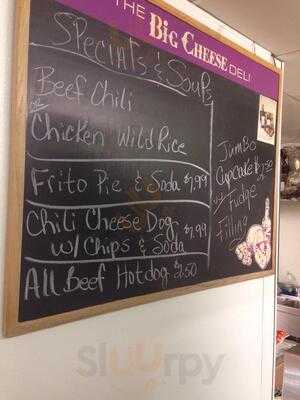 THE
BIG CHEESE DELI
Specials & Soups
Beef Chili
or
Chicken Wild Rice
Frito Pie & Soda $7.99
Chili Cheese Dog
w/ Chips & Soda $7.99
All Beef Hotdog
Jumbo
Cupcake
w/ Fudge
Filling
Sluurpy